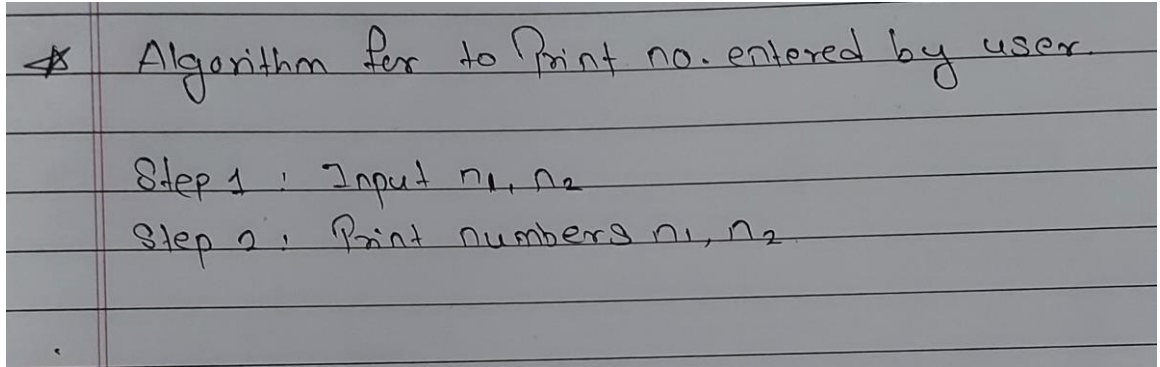 Algorithm for to Print no. entered by user.
Step 1 : Input n1, n2
Step 2 : Print numbers n1, n2